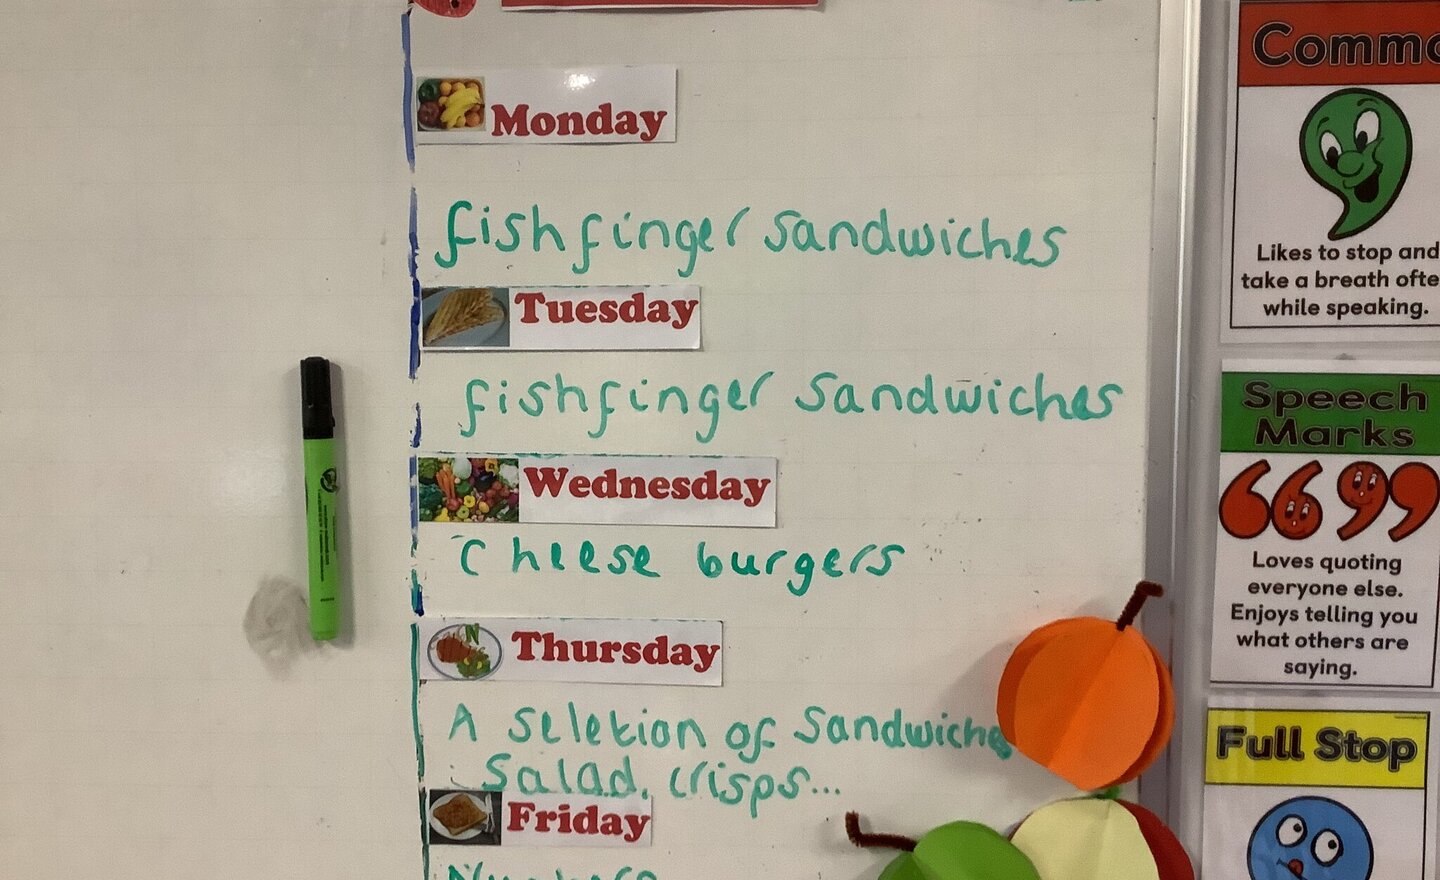 Monday
fishfinger sandwiches
Tuesday
fishfinger sandwiches
Wednesday
Cheese burgers
Thursday
A seletion of Sandwiches
Salad, crisps...
Friday
Comma
Likes to stop and
take a breath ofte
while speaking.
Speech
Marks
66 99
Loves quoting
everyone else.
Enjoys telling you
what others are
saying.
Full Stop